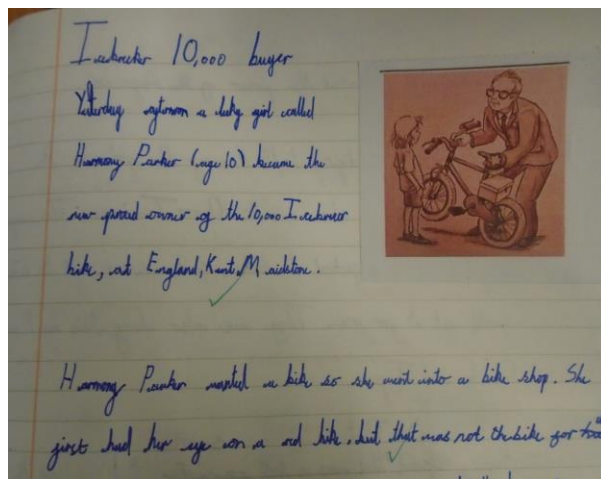 Icebreaker 10,000 buyer
Yesterday afternoon a lucky girl called
Harmony Parker (age 10) became the
new proud owner of the 10,000 Icebreaker
bike, at England, Kent, Maidstone.
Harmony Parker wanted a bike so she went into a bike shop. She
first had her eye on a red bike, but that was not the bike for